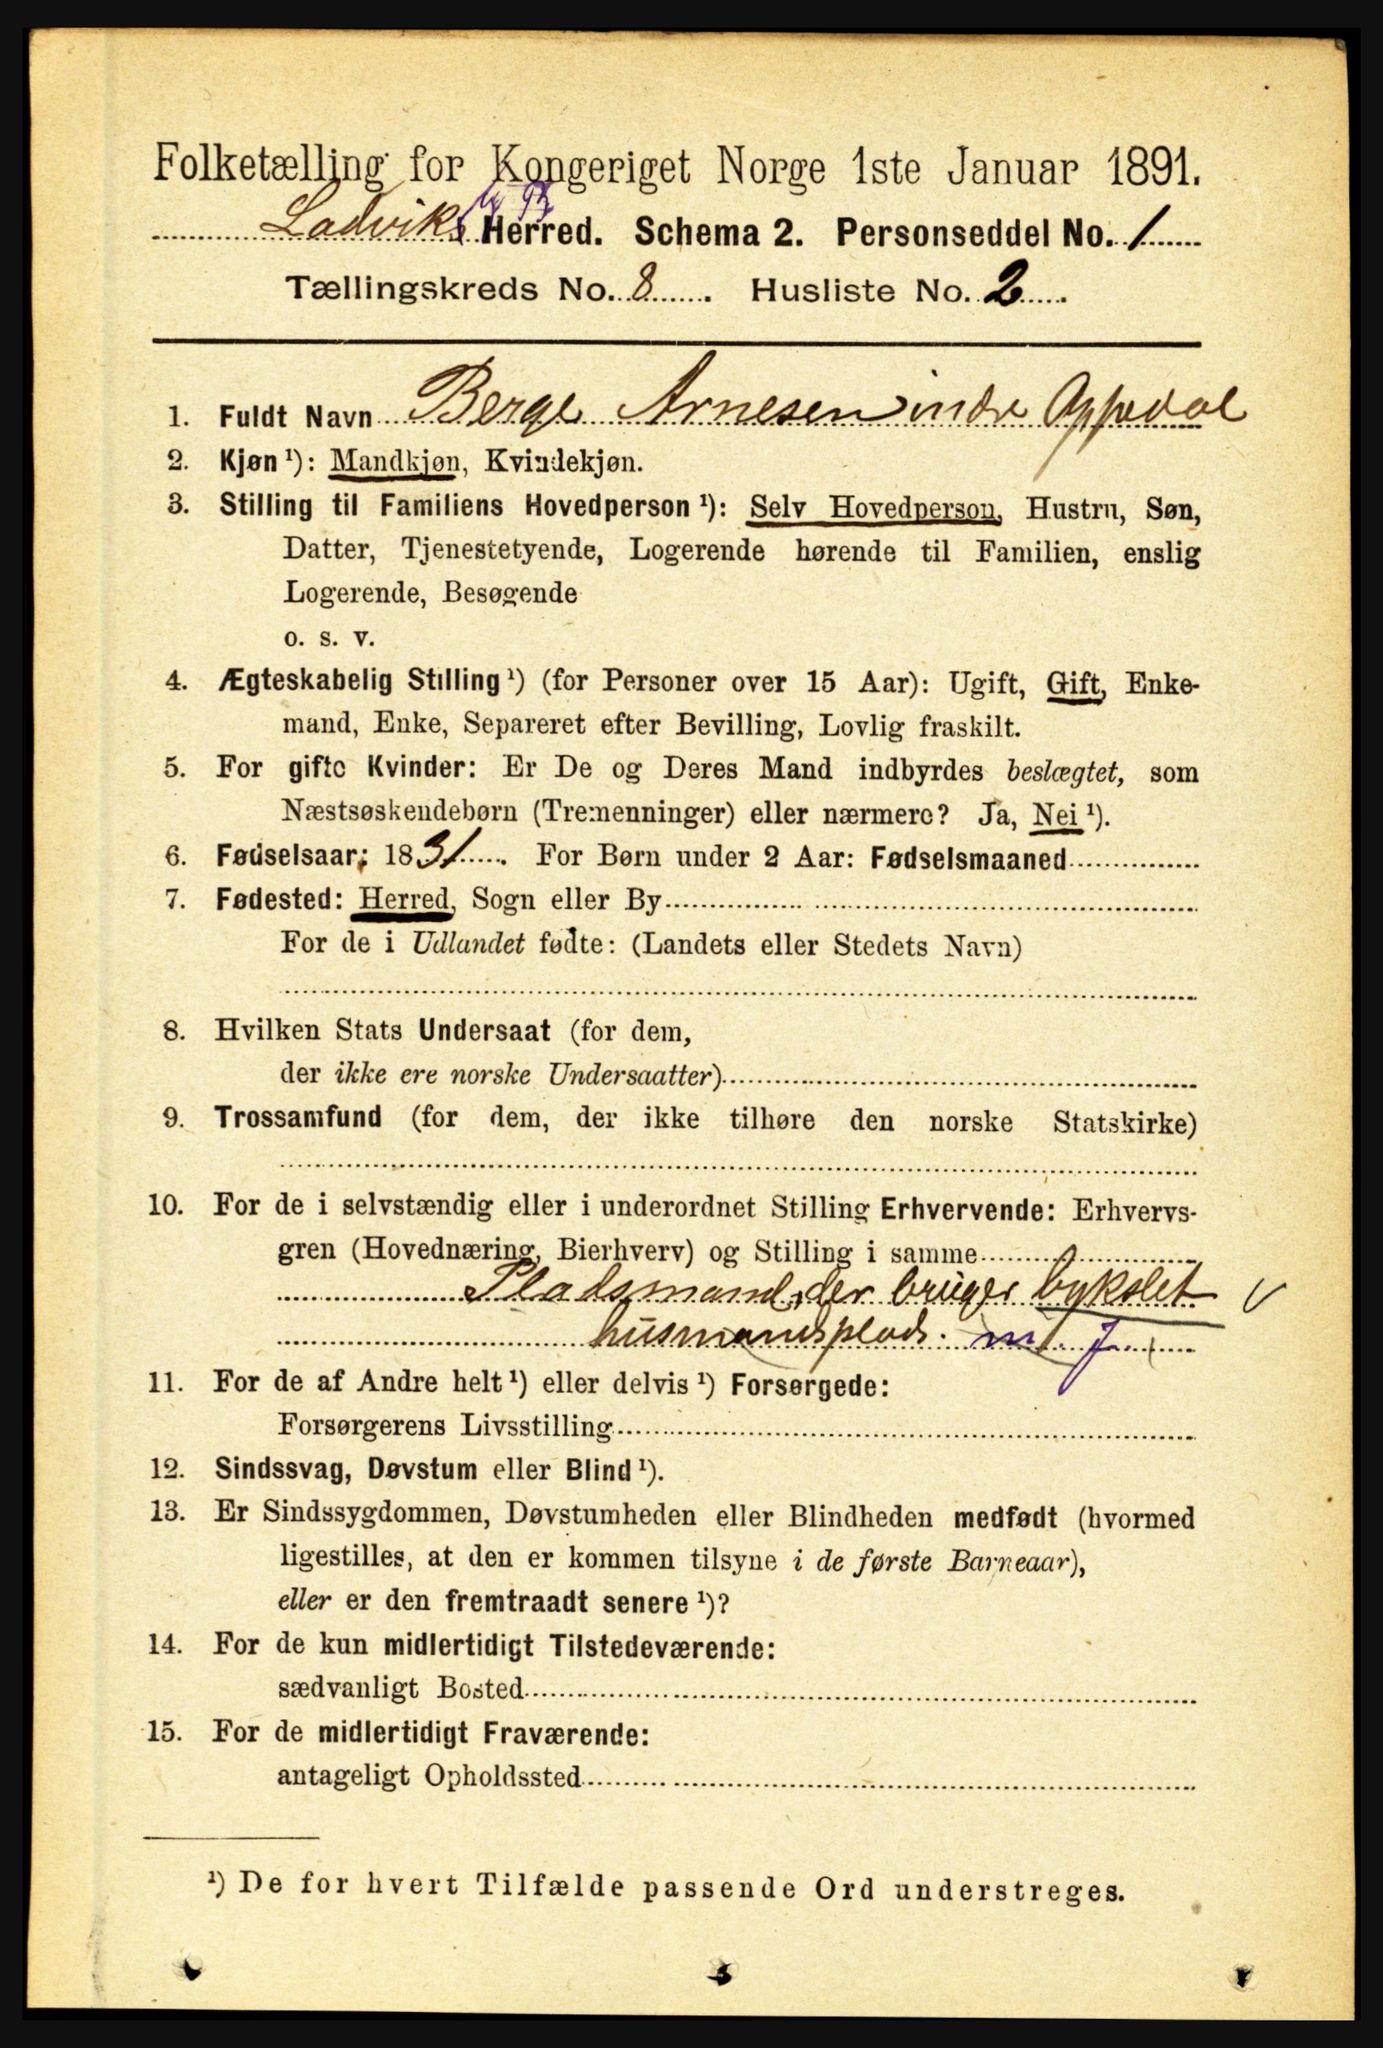 Folketælling for Kongeriget Norge 1ste Januar 1891.
Ladviks Herred. Schema 2. Personseddel No. 1
Tællingskreds No. 8. Husliste No. 2.
1. Fuldt Navn Berge Arnesen indre Oppedal
2. Kjøn ¹): Mandkjøn, Kvindekjøn.
3. Stilling til Familiens Hovedperson ¹): Selv Hovedperson, Hustru, Søn,
Datter, Tjenestetyende, Logerende hørende til Familien, enslig
Logerende, Besøgende
o. s. v.
4. Ægteskabelig Stilling ¹) (for Personer over 15 Aar): Ugift, Gift, Enke-
mand, Enke, Separeret efter Bevilling, Lovlig fraskilt.
5. For gifte Kvinder: Er De og Deres Mand indbyrdes beslægtet, som
Næstsøskendebørn (Tremenninger) eller nærmere? Ja, Nei ¹).
6. Fødselsaar: 1831. For Børn under 2 Aar: Fødselsmaaned
7. Fødested: Herred, Sogn eller By
For de i Udlandet fødte: (Landets eller Stedets Navn)
8. Hvilken Stats Undersaat (for dem,
der ikke ere norske Undersaatter)
9. Trossamfund (for dem, der ikke tilhøre den norske Statskirke)
10. For de i selvstændig eller i underordnet Stilling Erhvervende: Erhvervs-
gren (Hovednæring, Bierhverv) og Stilling i samme
Pladsmand, der bruger bykslet
husmandsplads. m. J.
11. For de af Andre helt ¹) eller delvis ¹) Forsørgede:
Forsørgerens Livsstilling
12. Sindssvag, Døvstum eller Blind ¹).
13. Er Sindssygdommen, Døvstumheden eller Blindheden medfødt (hvormed
ligestilles, at den er kommen tilsyne i de første Barneaar),
eller er den fremtraadt senere ¹)?
14. For de kun midlertidigt Tilstedeværende:
sædvanligt Bosted
15. For de midlertidigt Fraværende:
antageligt Opholdssted
¹) De for hvert Tilfælde passende Ord understreges.